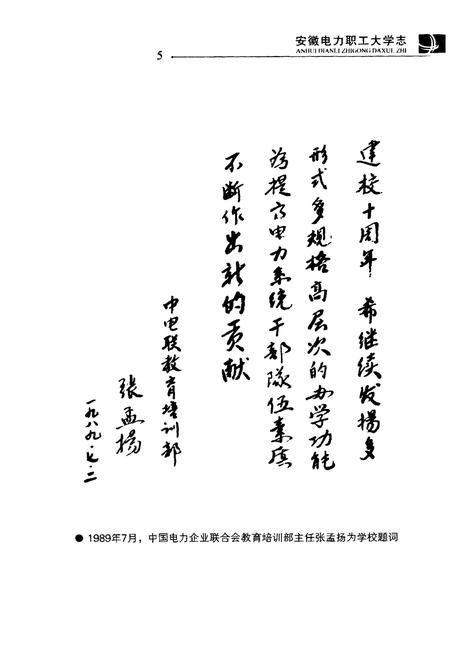 安徽电力职工大学志
ANHUI DIANLI ZHIGONG DAXUE ZHI
5
建校十周年 希继续发揚多
形式多规格高层次的办学功能
为提高电力系统干部隊伍素质
不断作出新的贡献
中电联教育培训部
张孟揚
一九八九·七·二
● 1989年7月，中国电力企业联合会教育培训部主任张孟扬为学校题词